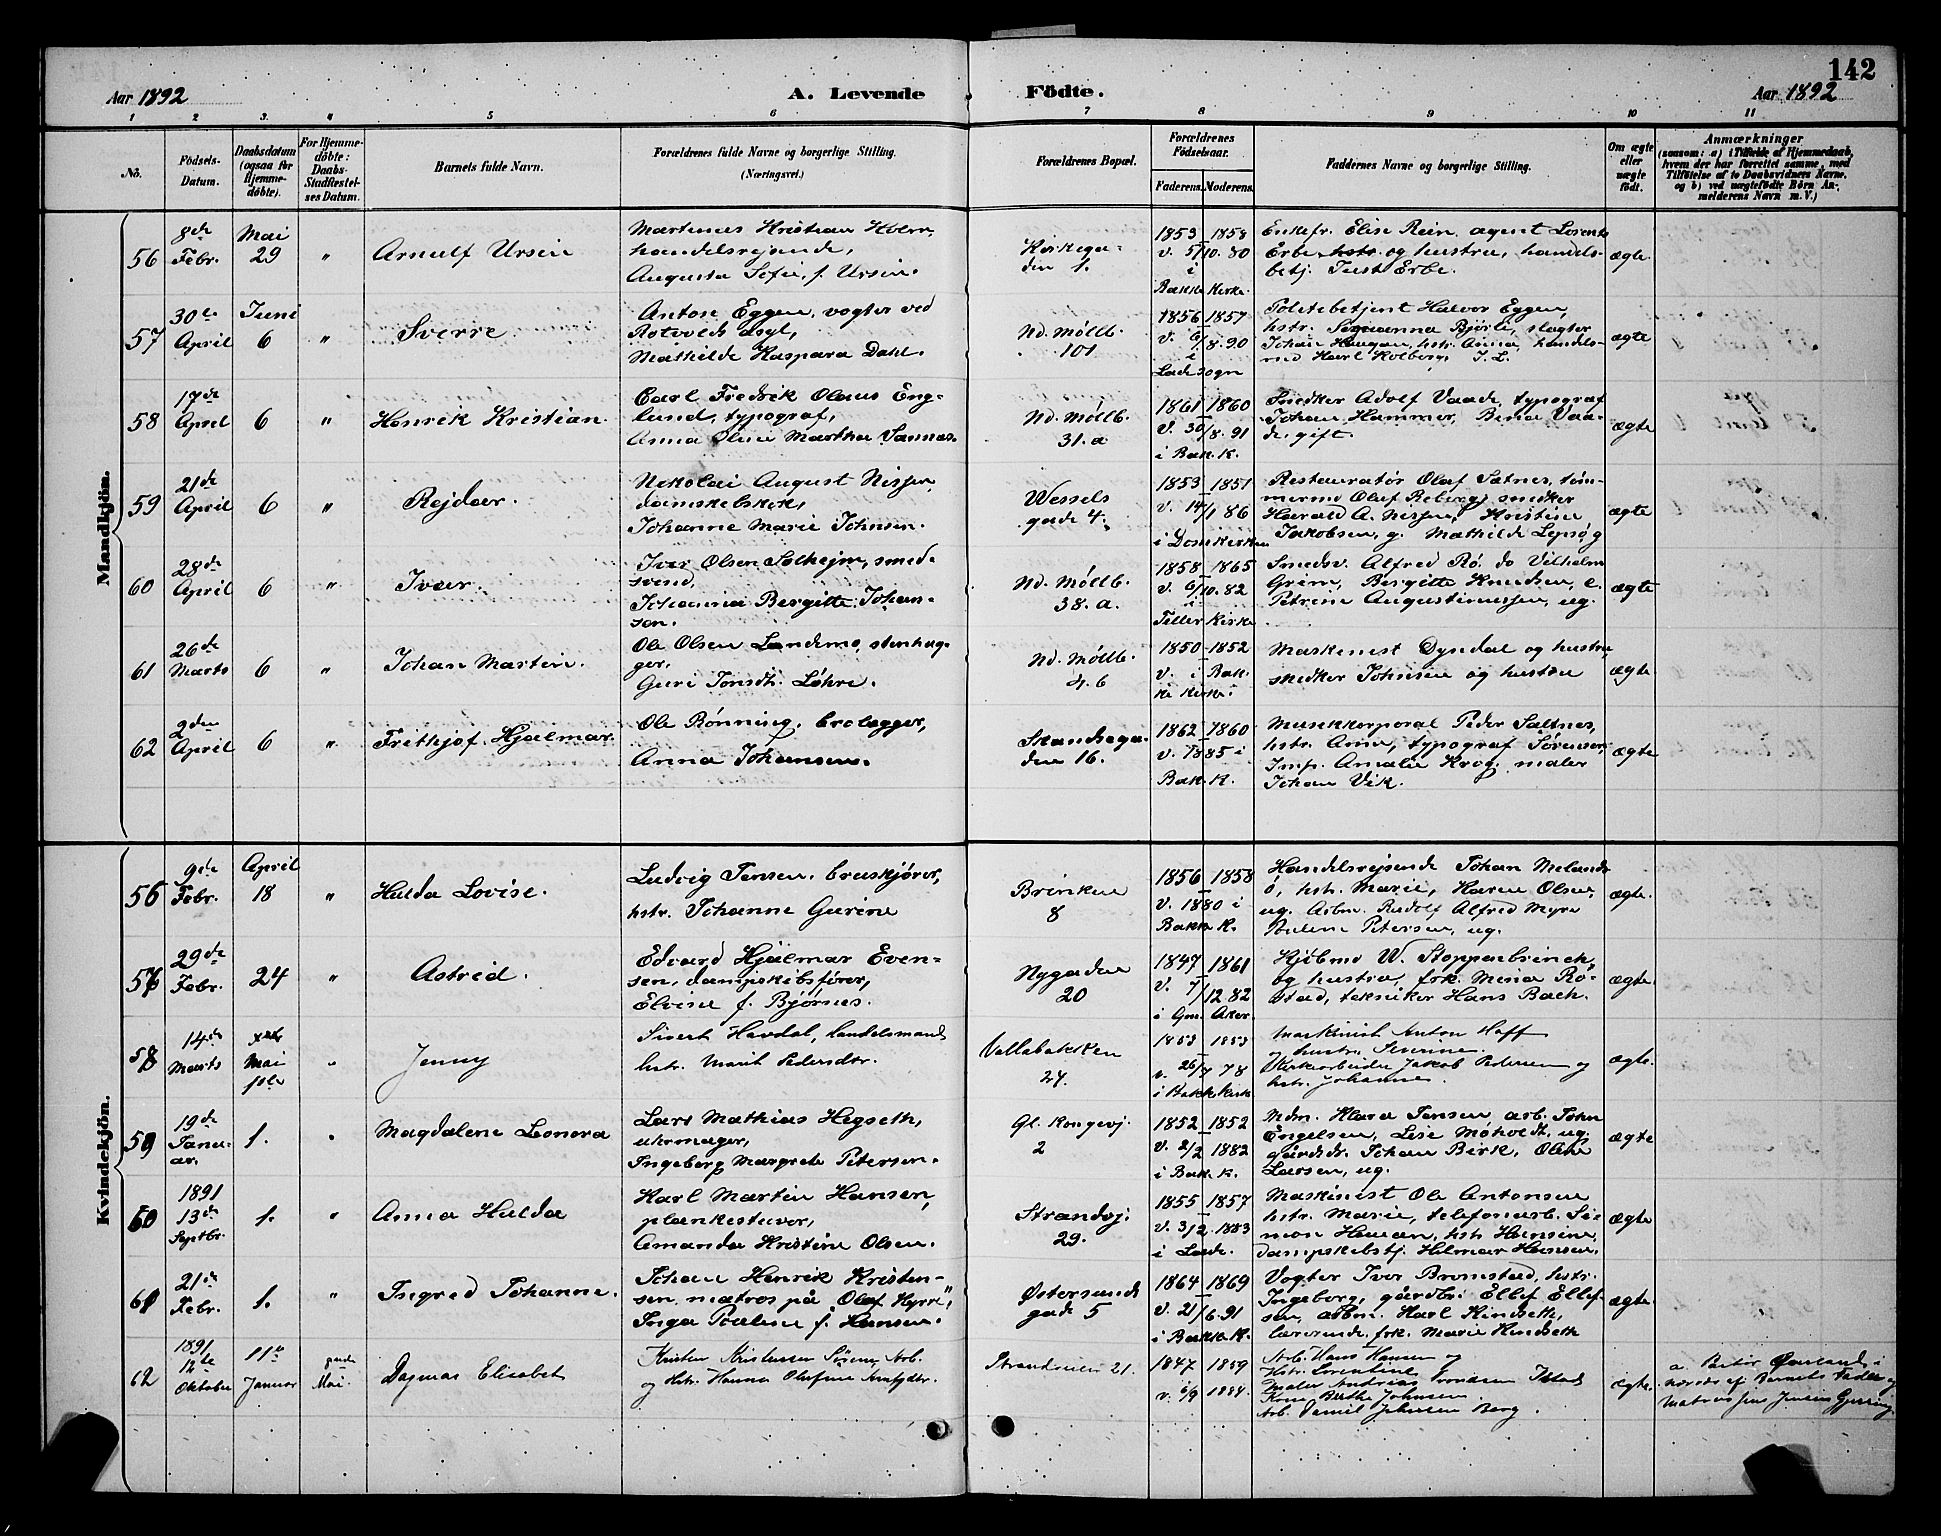 142
Aar 1892 A. Levende Födte. Aar 1892
1 2 3. 4 5 6 7 8 9 10 11
No.
Födsels-
Datum.
Daabsdatum
(ogsaa for
Hjemme-
döbte).
For Hjemme-
döbte:
Daabs-
Stadfæstel-
ses Datum.
Barnets fulde Navn.
Forældrenes fulde Navne og borgerlige Stilling.
(Næringsvei.)
Forældrenes Bopæl.
Forældrenes
Födselsaar.
Faderens. Moderens.
Faddernes Navne og borgerlige Stilling.
Om ægte
eller
uægte
födt.
Anmærkninger
(saasom: a) i Tilfælde af Hjemmedaab,
hvem der har forrettet samme, med
Tilföielse af to Daabsvidners Navne,
og b) ved uægtefödte Börn An-
melderens Navn m. V.)
Mandkjön.
56
8de
Febr.
Mai
29
"
Arnulf Ursin
Martinus Kristian Holm,
handelsrejsende,
Augusta Sofie, f. Ursin.
Kirkega-
den 1.
1853 1858
v. 5/10. 80
i
Bakke Kirke.
Enkefr. Elise Rein, agent Lorents
Erbe og hustru, handels-
betj. Just Erbe.
ægte
57
30te
April
Juni
6
"
Sverre
Anton Eggen, vogter ved
Rotvolds asyl,
Mathilde Kaspara Dahl.
Nd. Møllb.
101
1856 1857
v. 6/8. 90
i
Lade sogn
Politibetjent Halvor Eggen,
hstr. Bjørli, slagter
Johan Haugan, hstr. Anna, handels-
md Karl Kolberg, T. L.
ægte
58
17de
April
6
"
Henrik Kristian.
Carl Fredrik Olaus Eng-
lund, typograf,
Anna Oline Martha Sannæs.
Nd. Møllb.
31. a
1861 1860
v. 30/8. 91
i Bak. K.
Snedker Adolf Vaade, typograf
Johan Hammer, Berna Vaa-
de, gift.
ægte
59
21de
April
6
"
Rejdar.
Nikolai August Nissen,
damskibskok,
Johanne Marie Johnsen.
Wessels
gade 4.
1853 1851
v. 14/1 86
i Domkirken
Restauratør Olaf Satnes, tøm-
mermd Oluf Reberg, snedker
Harald A. Nissen, Kristine
Jakobsen, g. Mathilde Lepsøg
ægte
60
28de
April
6
"
Ivar.
Iver Olsen Solhejm, smed-
svend,
Johanna Bergitte Johan-
sen.
Nd. Møllb.
38. a.
1858 1865
v. 6/10. 82
i
Tiller Kirke
Smedsv. Alfred Rø, do Vilhelm
Grim, Bergitte Knudsen, e.
Petrine Augustinussen, ug.
ægte
61
26de
Marts
6
"
Johan Martin.
Ole Olsen Landemo, stenhug-
ger,
Guri Jonsdt. Løhre.
Nd. Møllb.
4. b
1850 1852
v. i Bak-
ke Kirke.
Maskinist Dyndal og hustru,
snedker Johnsen og hustru
ægte
62
2den
April
6
"
Frithjof Hjalmar.
Ole Rønning, brolægger,
Anna Johansen.
Skandsega-
den 16.
1862 1860
v. 1885 i
Bak. K.
Musikkorporal Peder Saltnes,
hstr. Ane, typograf Sørensen,
Jmfr. Amalie Krog, maler
Johan Vik.
ægte
Kvindekjön.
56
9de
Febr.
April
18
"
Hulda Lovise.
Ludvig Jensen, bruskjører,
hstr. Johanne Gurine
Brinken
8
1856 1858
v. 1880 i
Bakk K.
Handelsrejsende Johan Meland-
ø, hstr. Marie, Karen Olsen,
ug. Arbm. Rudolf Alfred Myra
Pauline Petersen, ug.
ægte.
57
29de
Febr.
24
"
Astrid.
Edvard Hjalmar Even-
sen, dampskibsfører,
Elvine f. Bjørnes.
Nygaden
20
1847 1861
v. 7/12 82
i Gm. Aker.
Kjøbmd W. Stoppenbrinck
og hustru, frk. Mina Rø-
stad, tekniker Hans Bach.
ægte.
58
14de
Marts
Mai
1ste
"
Jenny
Sivert Havdal, handelsmand
hstr. Marit Pedersdtr.
Vollabakken
24.
1853 1853
v. 26/7 78
i Bakke kirke
Maskinist Anton Hoff
og hustr. Severine.
Værkarbeider Jakob Pedersen og
hstr. Johanne.
ægte.
59
19de
Janu-
ar.
1.
"
Magdalene Leonora
Lars Mathias Hegseth,
uhrmager,
Ingeborg Margrete Petersen.
Gl. Kongevj.
2
1852 1852
v. 2/2 1882
i Bak. K.
Mdm. Klara Jensen, arb. John
Engelsen, Lise Møholdt, ug.
gårdsdr. Johan Birk, Oline
Larsen, ug.
ægte
60
1891
13de
Septbr.
1.
"
Anna Hulda
Karl Martin Hansen,
plankestuver,
Amanda Kristine Olsen.
Strandvj.
29.
1855 1857
v. 3/2 1883
i Lade.
Maskinist Ole Antonsen
hstr. Marie, telefonarb. Si-
mon Heman, hstr. Hansine,
dampskibstj. Hilmar Hansen.
ægte
61
21de
Febr.
1.
"
Ingrid Johanne.
Johan Henrik Kristen-
sen, matros på „Olaf Kyrre",
Inga Pauline f. Hansen.
Østersunds
gade 5
1864 1869
v. 21/6. 91
i Bakk. K.
Vogter Iver Bromstad, hstr.
Ingeborg, gårdbr. Ellef Ellef-
sen, arbm. Karl Kindseth,
lærerinde frk. Marie Kindseth
ægte.
62
1891
12te
Oktober
11te
Januar
Mai.
Dagmar Elisabet
Kristen Kristensen Arb.
og hstr. Hanna Olufine
Strandveien 21.
1847 1859
v. 6/9 1884
Arb. Hans Hansen og
hstr. Lorentine
Maler Andreas
Kone Berthe Johnsen.
Arb. Daniel Johnsen Berg.
ægte.
a. Betzy i
nærvær af Barnets Fader og
Matros Jens Jensen